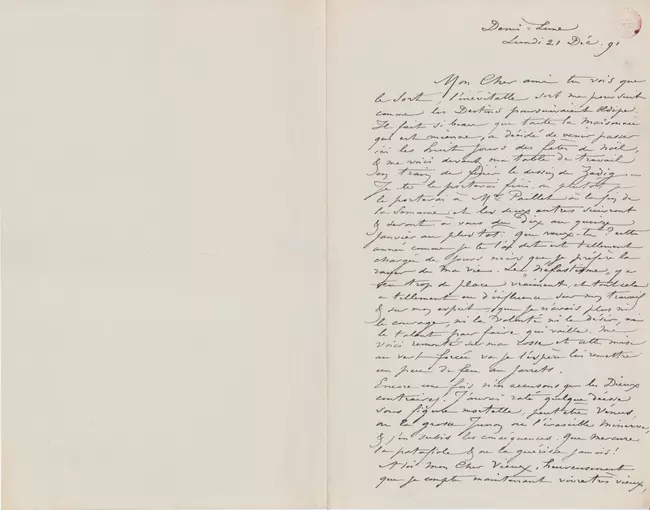 Demi-Lune
Lundi 21 Déc. 91
Mon Cher ami tu vois que
le sort, l'inévitable sort me poursuit
comme les Destins poursuivaient Œdipe.
Il fait si beau que toute la maisonnée
qui est mienne, a décidé de venir passer
ici les huit jours des fêtes de Noël,
& me voici devant ma table de travail
en train de finir le dessin de Zadig. —
Je te le porterai fini, ou plutôt je
le porterai à Mr Paillet à la fin de
la semaine et les deux autres suivront
& seront à vous du Dix au quinze
janvier au plus tot. Que veux-tu? cette
année comme je te l'ai dit est tellement
chargée de jours noirs que je préfère la
rayer de ma vie. Le a
trop de place vraiment, et tout cela
a tellement eu d'influence sur mon travail
& sur mon esprit, que je n'avais plus ni
le courage, ni la volonté ni le désir, ni
le talent pour faire qui vaille. Me
voici remonté sur ma rosse et cette mise
au vert forcée va je l'espère lui remettre
un peu de feu au jarrets.
Encore une fois n'en accusons que les Dieux
contraires. J'aurai raté quelque déesse
sous figure mortelle, peut-être Vénus
ou la grosse Junon ou l'irascible Minerve,
& j'en subis les conséquences. Que Mercure
la & ne la guérisse jamais!
A toi mon Cher Vieux, heureusement
que je compte maintenant vivre très vieux,